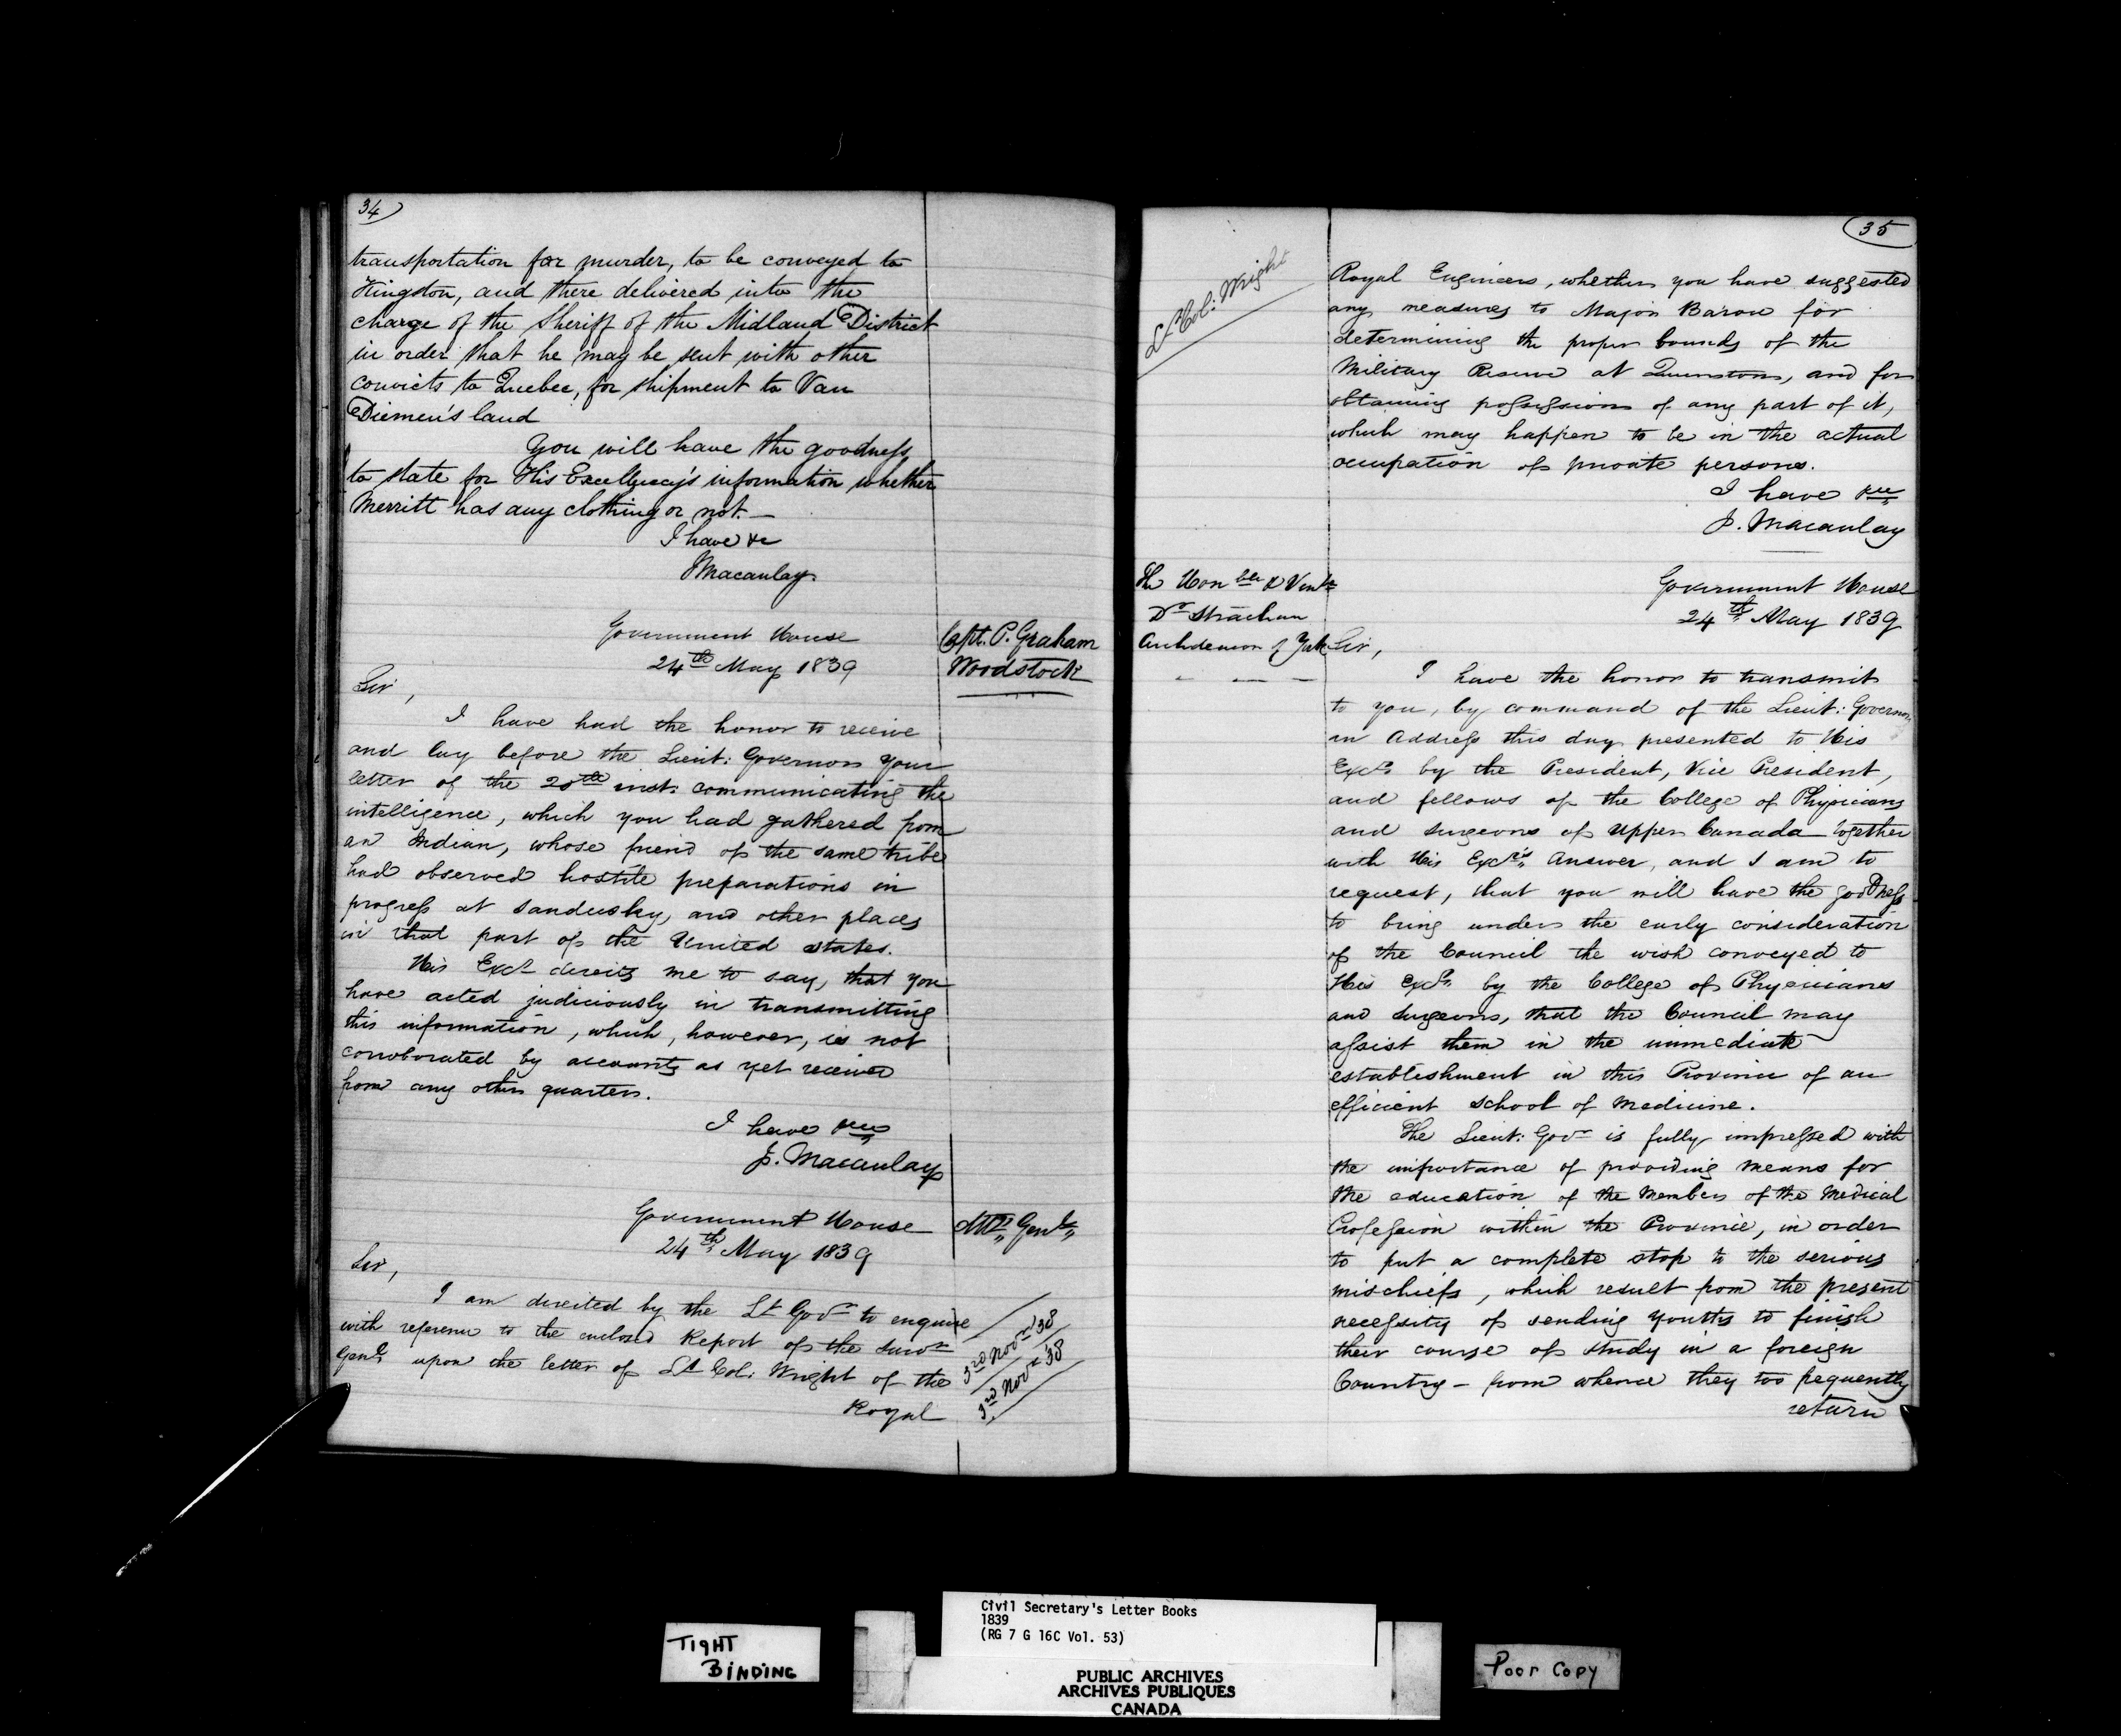 34
transportation for murder, to be conveyed to
Kingston, and there delivered into the
charge of the Sheriff of the Midland District
in order that he may be sent with other
convicts to Quebec, for shipment to Van
Diemen's land
You will have the goodness
to state for His Excellency's information whether
Merritt has any clothing or not. —
I have &c
J Macaulay
Government House
24th May 1839
Capt. P. Graham
Woodstock
Sir,
I have had the honor to receive
and lay before the Lieut: Governor your
letter of the 20th inst. communicating the
intelligence, which you had gathered from
an Indian, whose friend of the same tribe
had observed hostile preparations in
progress at Sandusky, and other places
in that part of the United States.
His Excy directs me to say, that you
have acted judiciously in transmitting
this information, which, however, is not
corroborated by accounts as yet received
from any other quarter.
I have &c
J. Macaulay
Government House
24th May 1839
Atty Genl
Sir,
I am directed by the Lt Govr to enquire
with reference to the enclosed Report of the Survr
Genl upon the letter of Lt Col. Wright of the
Royal
3rd Novr '38
3rd Novr '38
35
Lt Col: Wright
Royal Engineers, whether you have suggested
any measures to Major Baron for
determining the proper bounds of the
Military Reserve at Queenston, and for
obtaining possession of any part of it,
which may happen to be in the actual
occupation of private persons.
I have &c
J. Macaulay
The Honble & Venble
Dr Strachan
Archdeacon of York
Government House
24th May 1839
Sir,
I have the honor to transmit
to you, by command of the Lieut: Governor,
an Address this day presented to His
Excy by the President, Vice President,
and fellows of the College of Physicians
and Surgeons of Upper Canada together
with His Excy's Answer, and I am to
request, that you will have the goodness
to bring under the early consideration
of the Council the wish conveyed to
His Excy by the College of Physicians
and Surgeons, that the Council may
assist them in the immediate
establishment in this Province of an
efficient School of Medicine.
The Lieut: Govr is fully impressed with
the importance of providing means for
the education of the Members of the Medical
Profession within the Province, in order
to put a complete stop to the serious
mischiefs, which result from the present
necessity of sending youths to finish
their course of study in a foreign
Country — from whence they too frequently
return
TIGHT
BINDING
Civil Secretary's Letter Books
1839
(RG 7 G 16C Vol. 53)
PUBLIC ARCHIVES
ARCHIVES PUBLIQUES
CANADA
Poor Copy